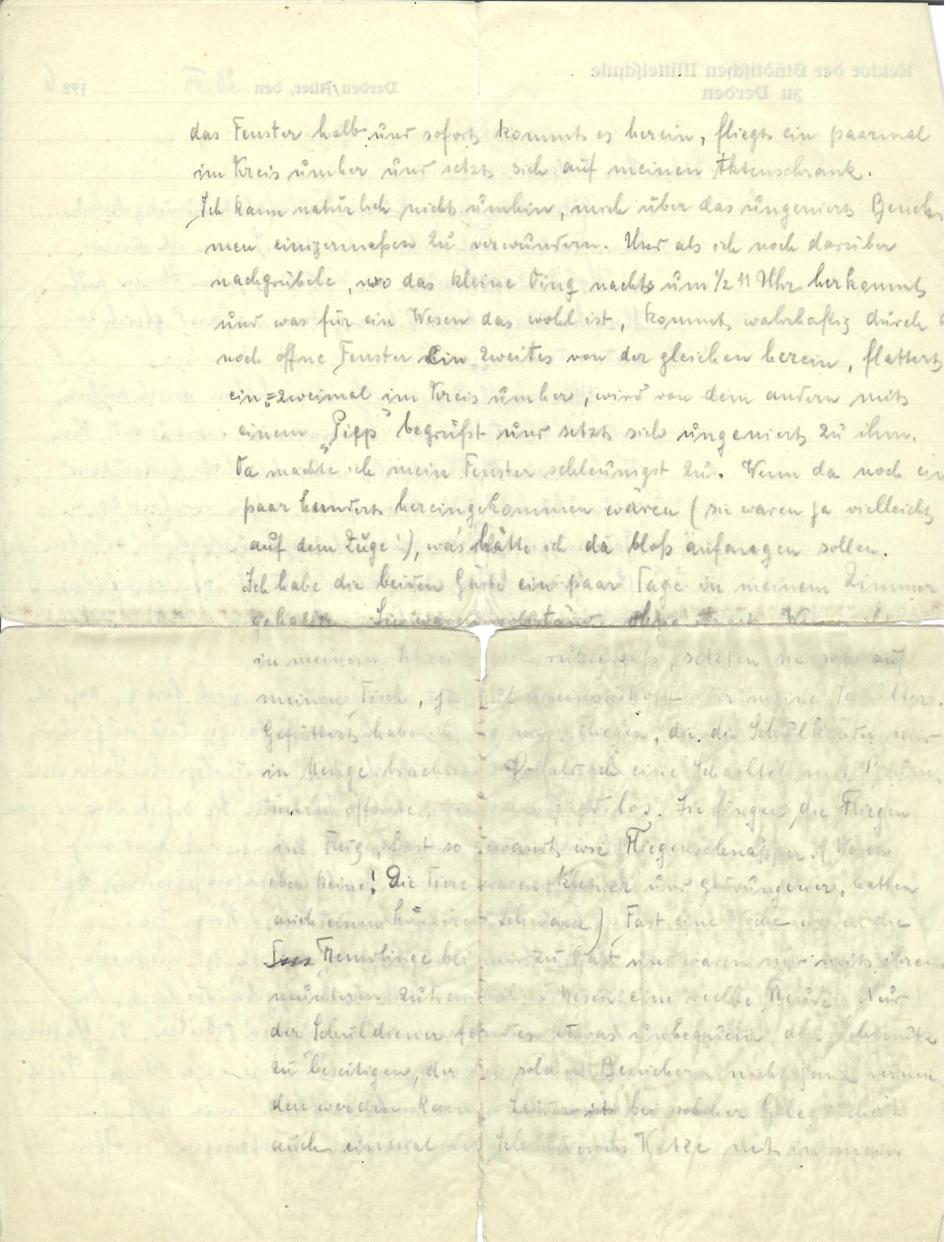 das Fenster halb und sofort kommt es herein, fliegt ein paarmal
im Kreis umher und setzt sich auf meinen Aktenschrank.
Ich kann natürlich nicht umhin, mich über das ungenierte Beneh
men einigermaßen zu verwundern. Und als ich noch darüber
nachgrübele, wo das kleine Ding nachts um 1/2 11 Uhr herkommt
und was für ein Wesen das wohl ist, kommt wahrhaftig durch
noch offne Fenster ein zweites von der gleichen herein, flattert
ein=zweimal im Kreis umher, wird von dem andern mit
einem „Piep" begrüßt und setzt sich ungeniert zu ihm.
Da machte ich mein Fenster schleunigst zu. Wenn da noch ein
paar hundert hereingekommen wären (sie waren ja vielleicht
auf dem Zuge!), was hätte ich da bloß anfangen sollen.
Ich habe die beiden Gäste ein paar Tage in meinem Zimmer
gehalten. Sie waren ohne Wenn
in meinem setzten sie sich auf
meinen Tisch, ja auf meine Schulter.
Gefüttert habe ich mit Fliegen, die die Schulkinder mir
in Menge brachten. Sobald ich eine Schachtel mit
öffnete, los. Sie fingen die Fliegen
im Fluge, fast so gewandt wie Fliegenschnäpper. (Waren
aber keine! Die Tiere waren kleiner und gedrungener, hatten
auch einen kürzeren Schwanz) Fast eine Woche waren die
Fremdlinge bei mir zu Gast und waren mir mit ihrem
munteren Wesen eine rechte Freude. Nur
der Schuldiener fand es etwas unbequem, den Schmutz
zu beseitigen, der bei solchen Besuchern nicht ganz vermie
den werden kann. Leider bei solcher Gelegenheit
auch einmal des Schuldieners Katze mit in mein